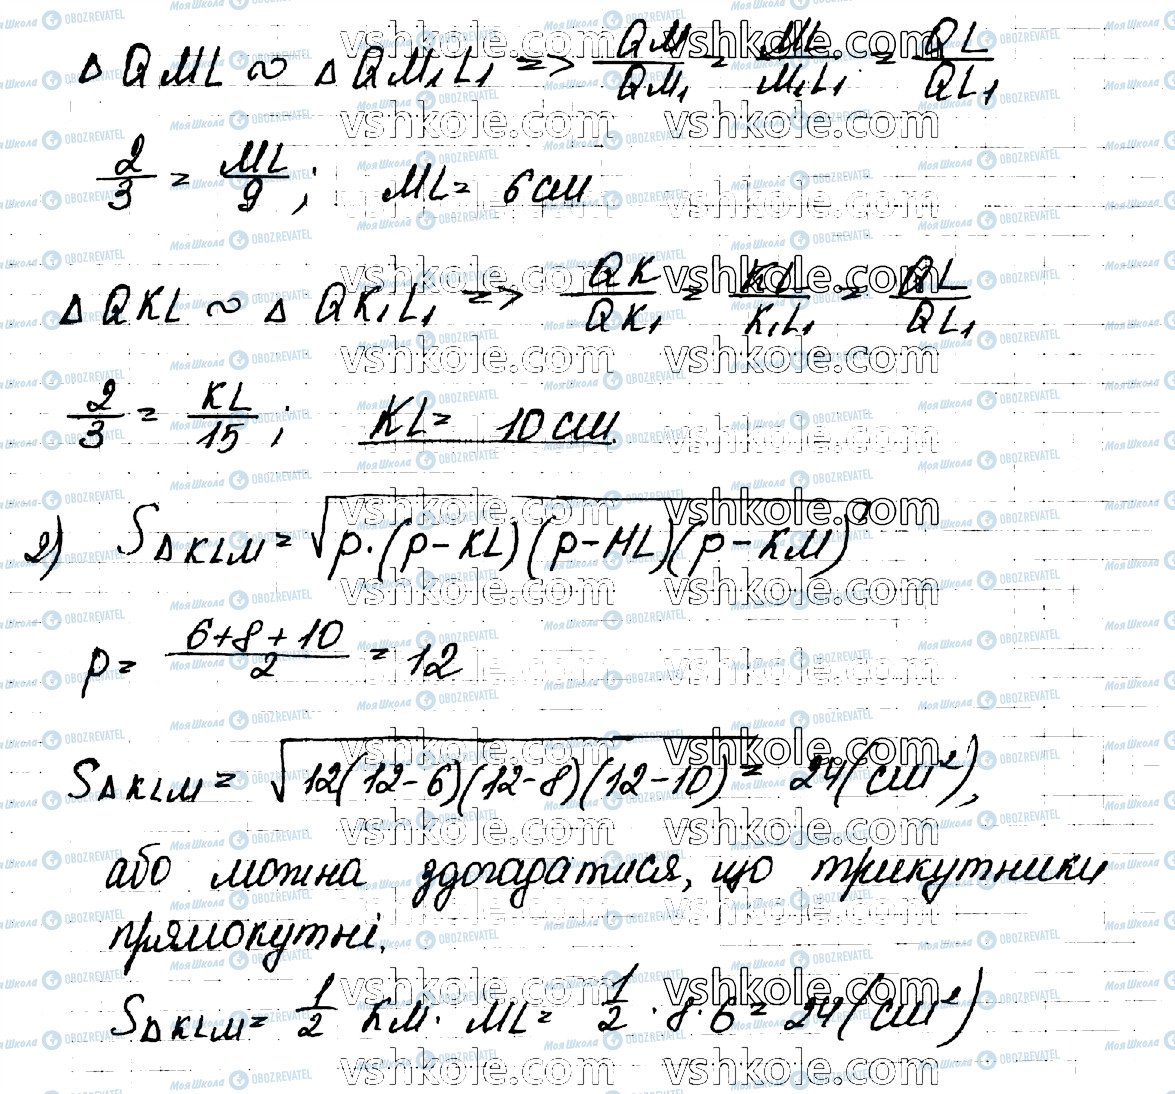 △QML ∾ △QM₁L₁ => QM/QM₁ = ML/M₁L₁ = QL/QL₁
2/3 = ML/9; ML = 6 см
△QKL ∾ △QK₁L₁ => QK/QK₁ = KL/K₁L₁ = QL/QL₁
2/3 = KL/15; KL = 10 см
2) S△KLM = √p·(p-KL)(p-ML)(p-KM)
p = (6+8+10)/2 = 12
S△KLM = √12(12-6)(12-8)(12-10) = 24 (см²),
або можна здогадатися, що трикутники
прямокутні.
S△KLM = 1/2 KM · ML = 1/2 · 8 · 6 = 24 (см²)
vshkole.com
МояШкола OBOZREVATEL